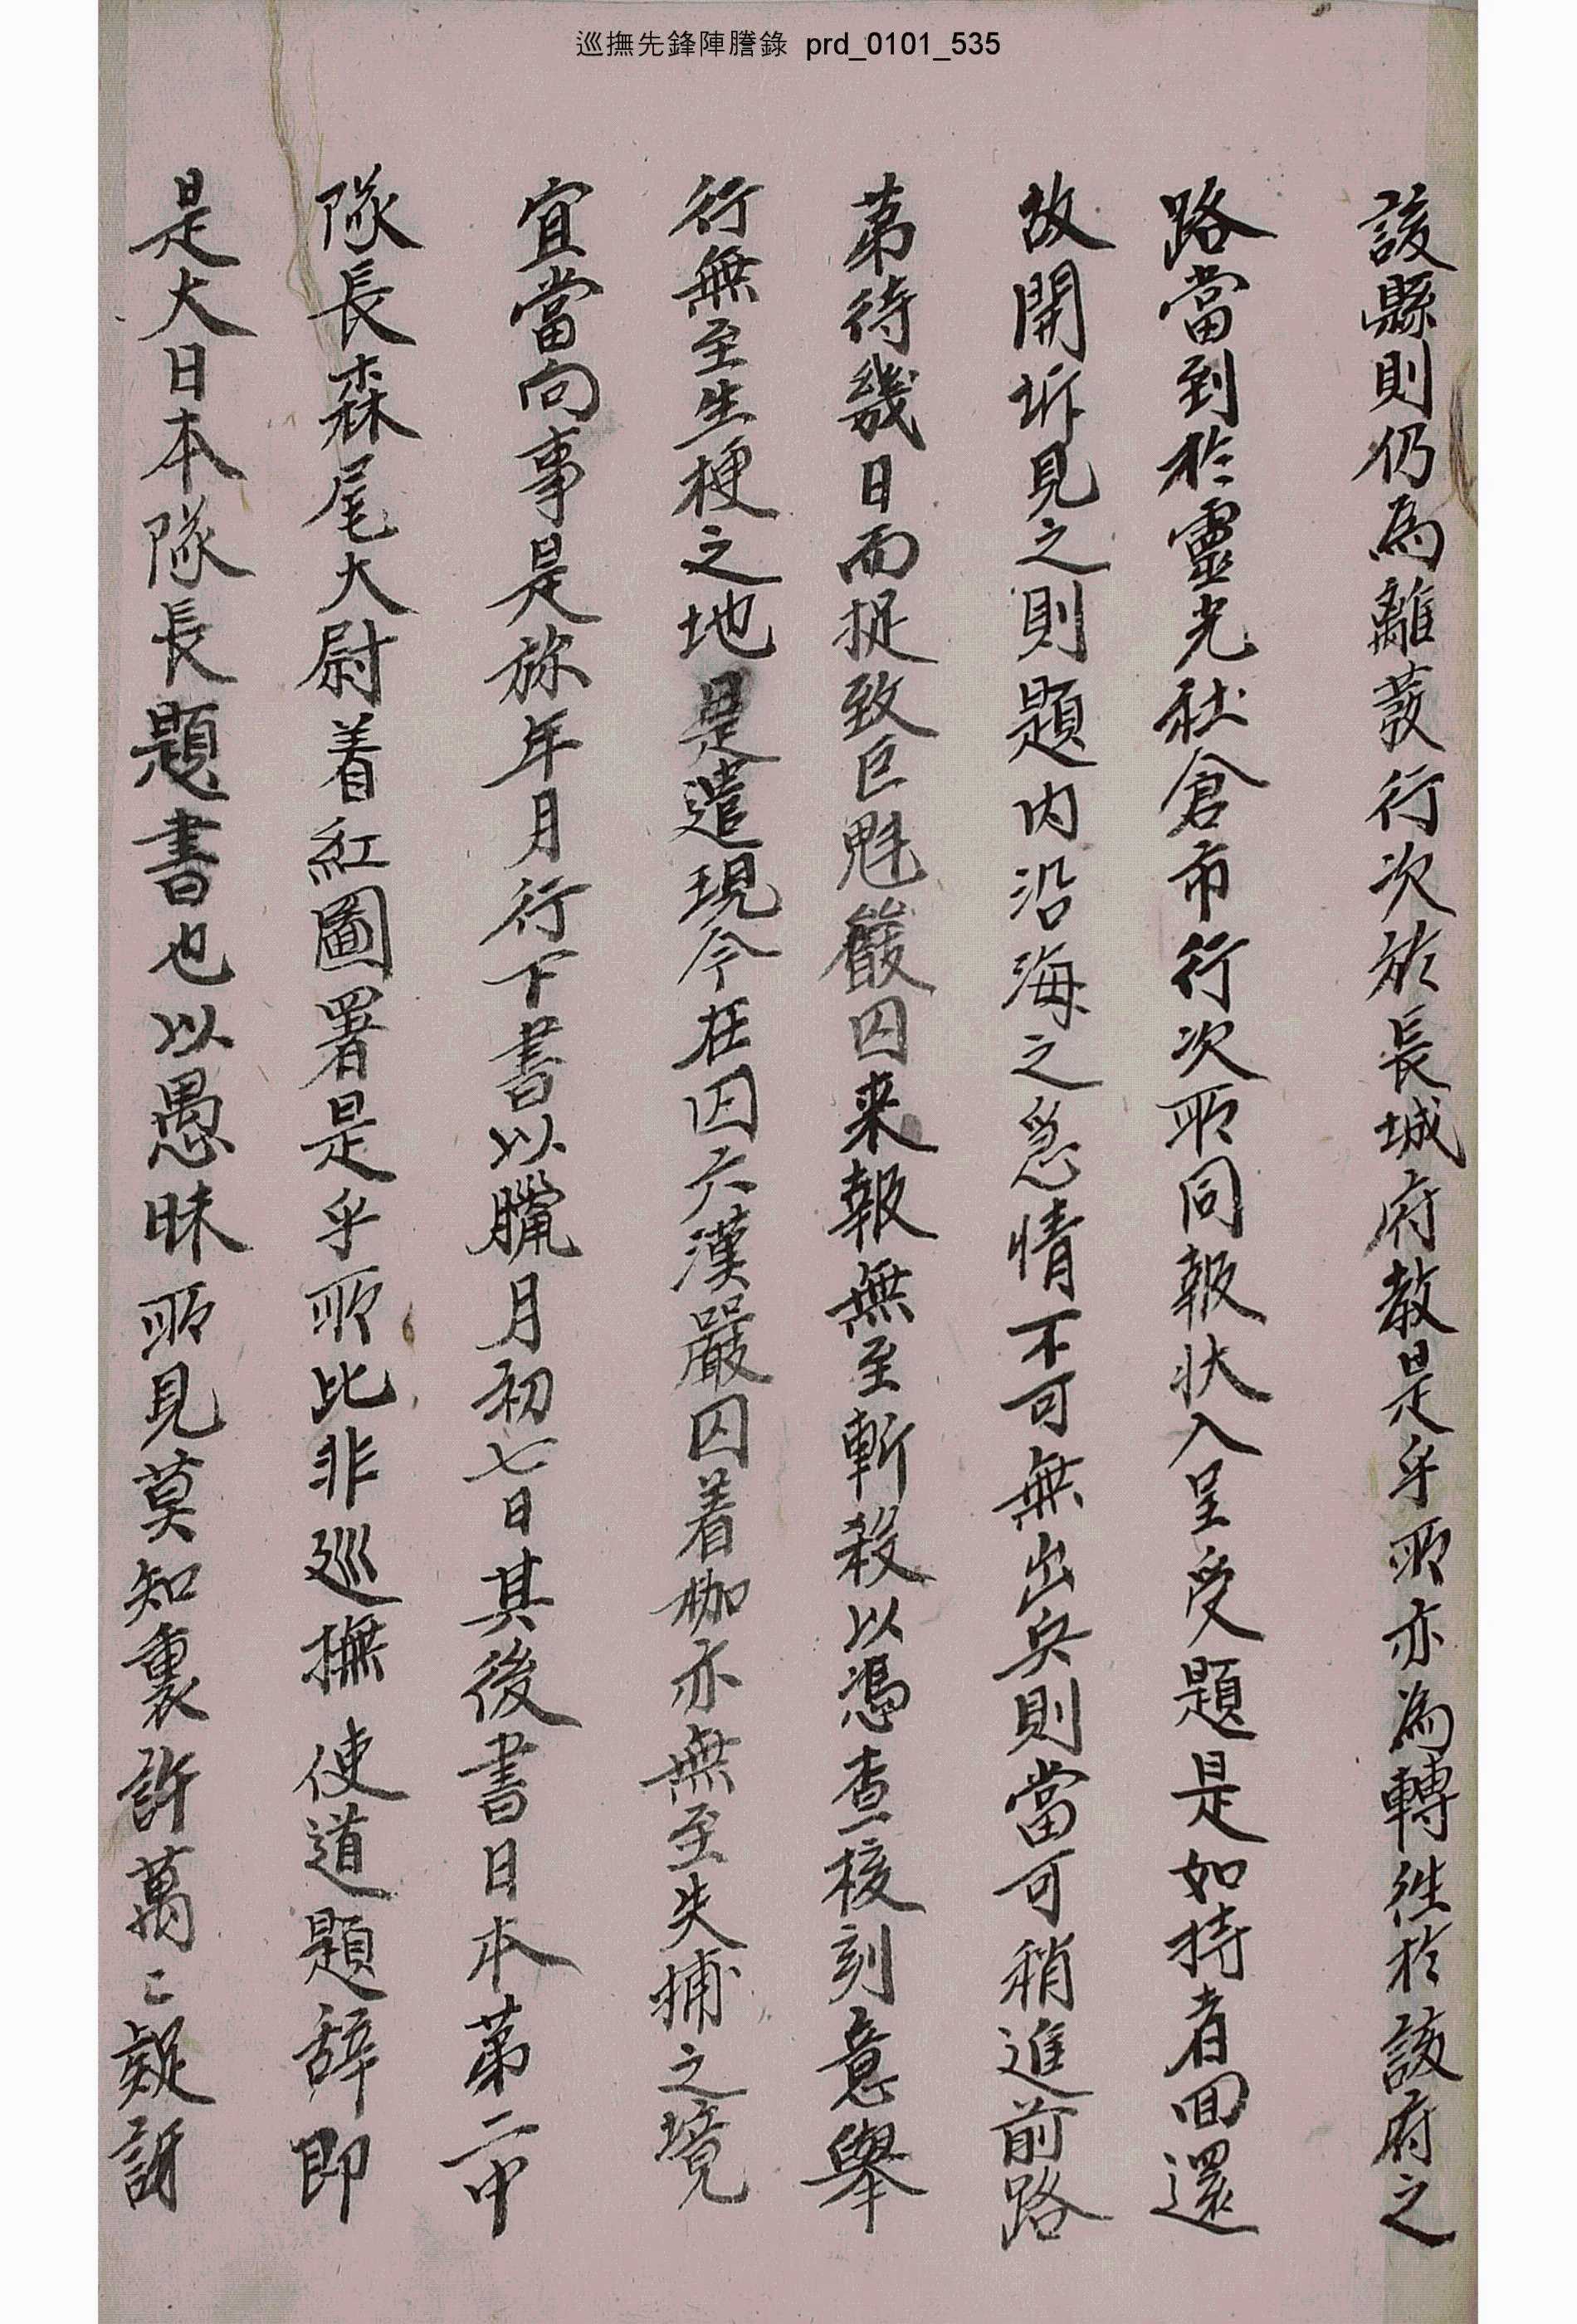 巡撫先鋒陣謄錄 prd_0101_535
該縣則仍爲離發行次於長城府敎是乎所亦爲轉往於該府之
路當到於靈光社倉市行次所同報狀入呈受題是如持者回還
故開坼見之則題內沿海之急情不可無出兵則當可稍進前路
第待幾日而捉致巨魁嚴囚来報無至斬殺以憑查核刻意擧
行無至生梗之地是遣現今在囚六漢嚴囚着枷亦無至失捕之境
宜當向事是旀年月行下書以臘月初七日其後書日本第二中
隊長森尾大尉着紅圖署是乎所比非巡撫使道題辞即
是大日本隊長題書也以愚昧所見莫知裏許萬〻疑訝